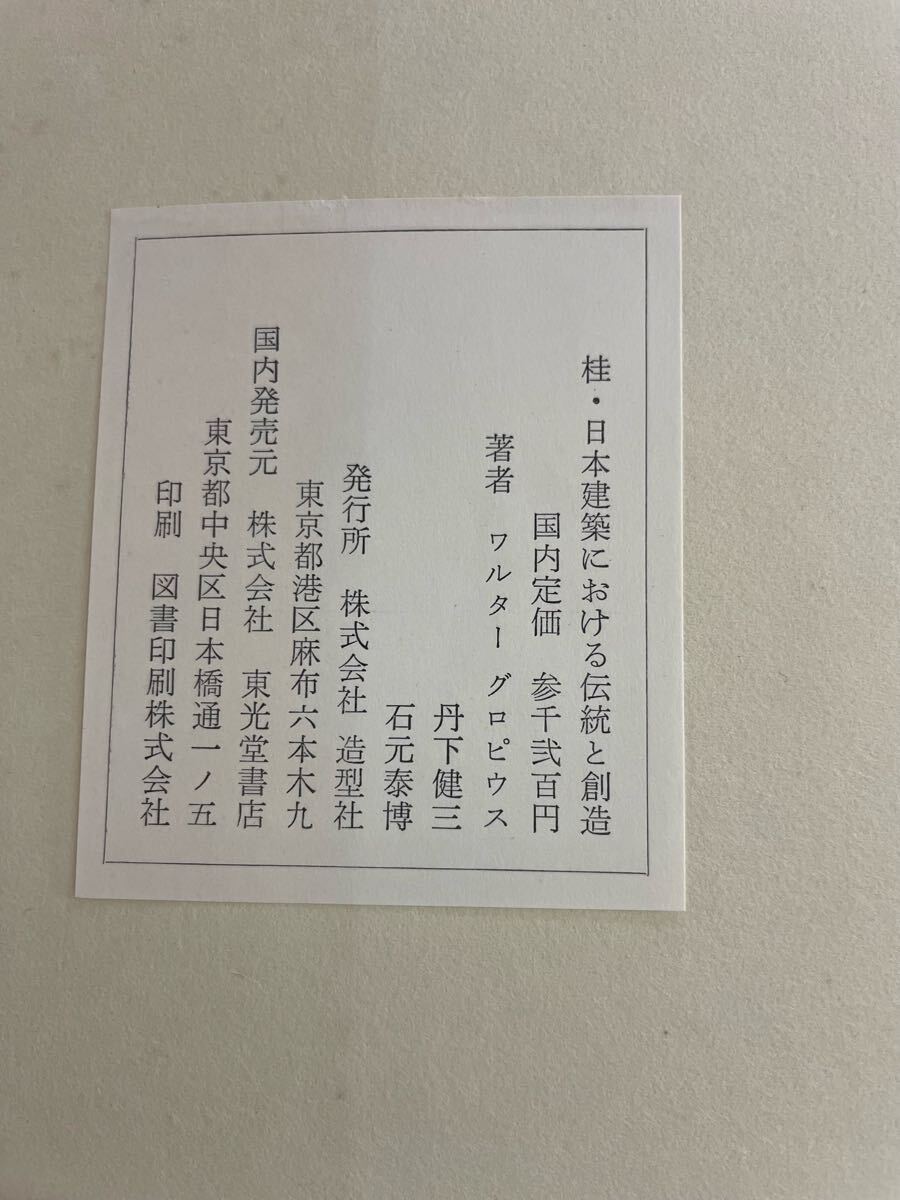 桂・日本建築における伝統と創造
国内定価 参千弐百円
著者 ワルター グロピウス
丹下健三
石元泰博
発行所 株式会社 造型社
東京都港区麻布六本木九
国内発売元 株式会社 東光堂書店
東京都中央区日本橋通一ノ五
印刷 図書印刷株式会社